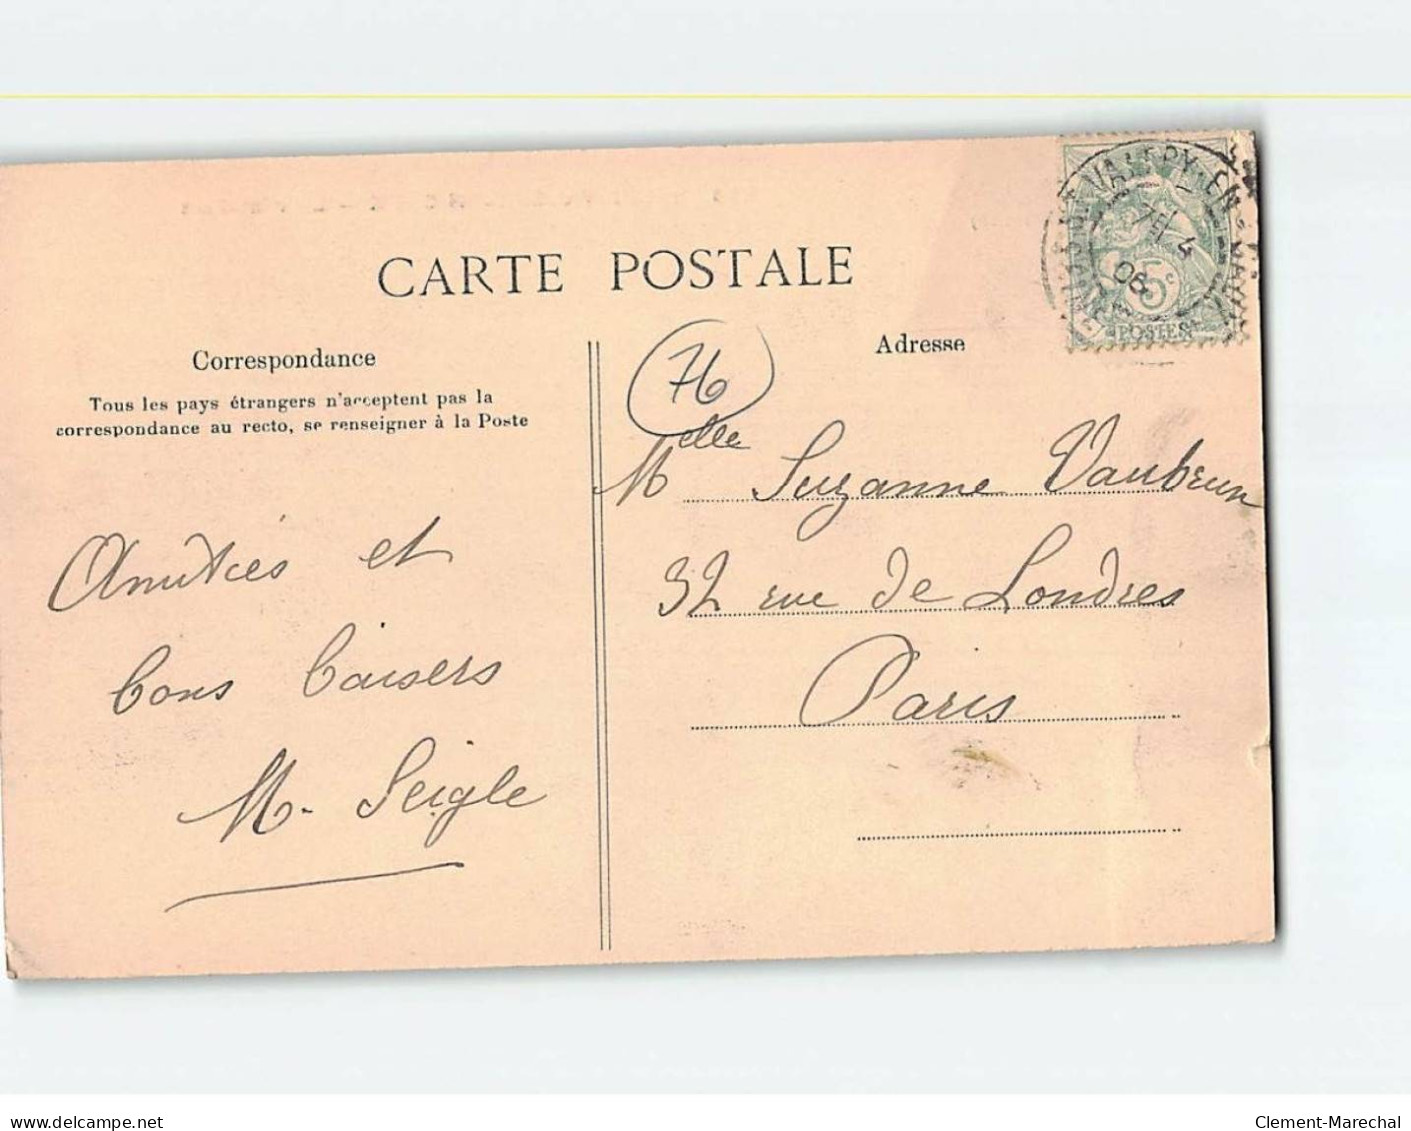 CARTE POSTALE
Correspondance
Tous les pays étrangers n'acceptent pas la
correspondance au recto, se renseigner à la Poste
Amitiés et
bons baisers
M. Seigle
Adresse
76
Melle Suzanne Vaubrun
32 rue de Londres
Paris
ST VALERY-EN-CAUX
4
06
5c
POSTES
delcampe.net
Clement-Marechal